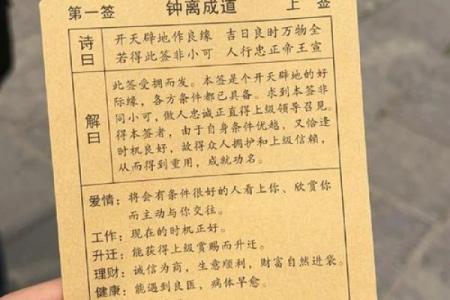 第一签 钟离成道 上签
诗曰
开天辟地作良缘 吉日良时万物全
若得此签非小可 人行忠正帝王宣
解曰
此签受拥而发。本签是个开天辟地的好
际缘，各方条件都已具备。求到本签非
同小可，做人忠诚正直得上级领导召见。
得本签者，由于自身条件优越，又恰逢
时机良好，故得众人拥护和上级信赖，
从而得到重用，成就功名。
爱情：将会有条件很好的人看上你、欣赏你
而主动与你交往。
工作：现在的时机正好。
升迁：能获得上级赏赐而升迁。
理财：诚信为商，生意顺利，财富自然进袋。
健康：能遇到良医，病体早愈。